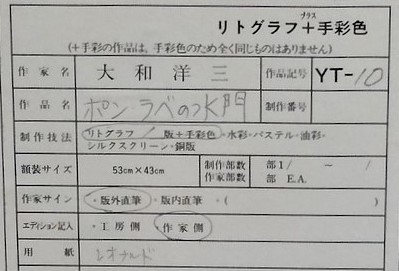 プラス
リトグラフ+手彩色
(+手彩の作品は、手彩色のため全く同じものはありません)
作家名 大和洋三 作品記号 YT-10
作品名 ポンラベの水門 制作番号
制作技法 リトグラフ / 版+手彩色・水彩・パステル・油彩・
シルクスクリーン・銅版
額装サイズ 53cm×43cm 制作部数 部 1/ ~ /
作家部数 部 E.A.
作家サイン ・版外直筆・版内直筆・(
エディション記入 ・工房側・作家側
用紙 レオナルド